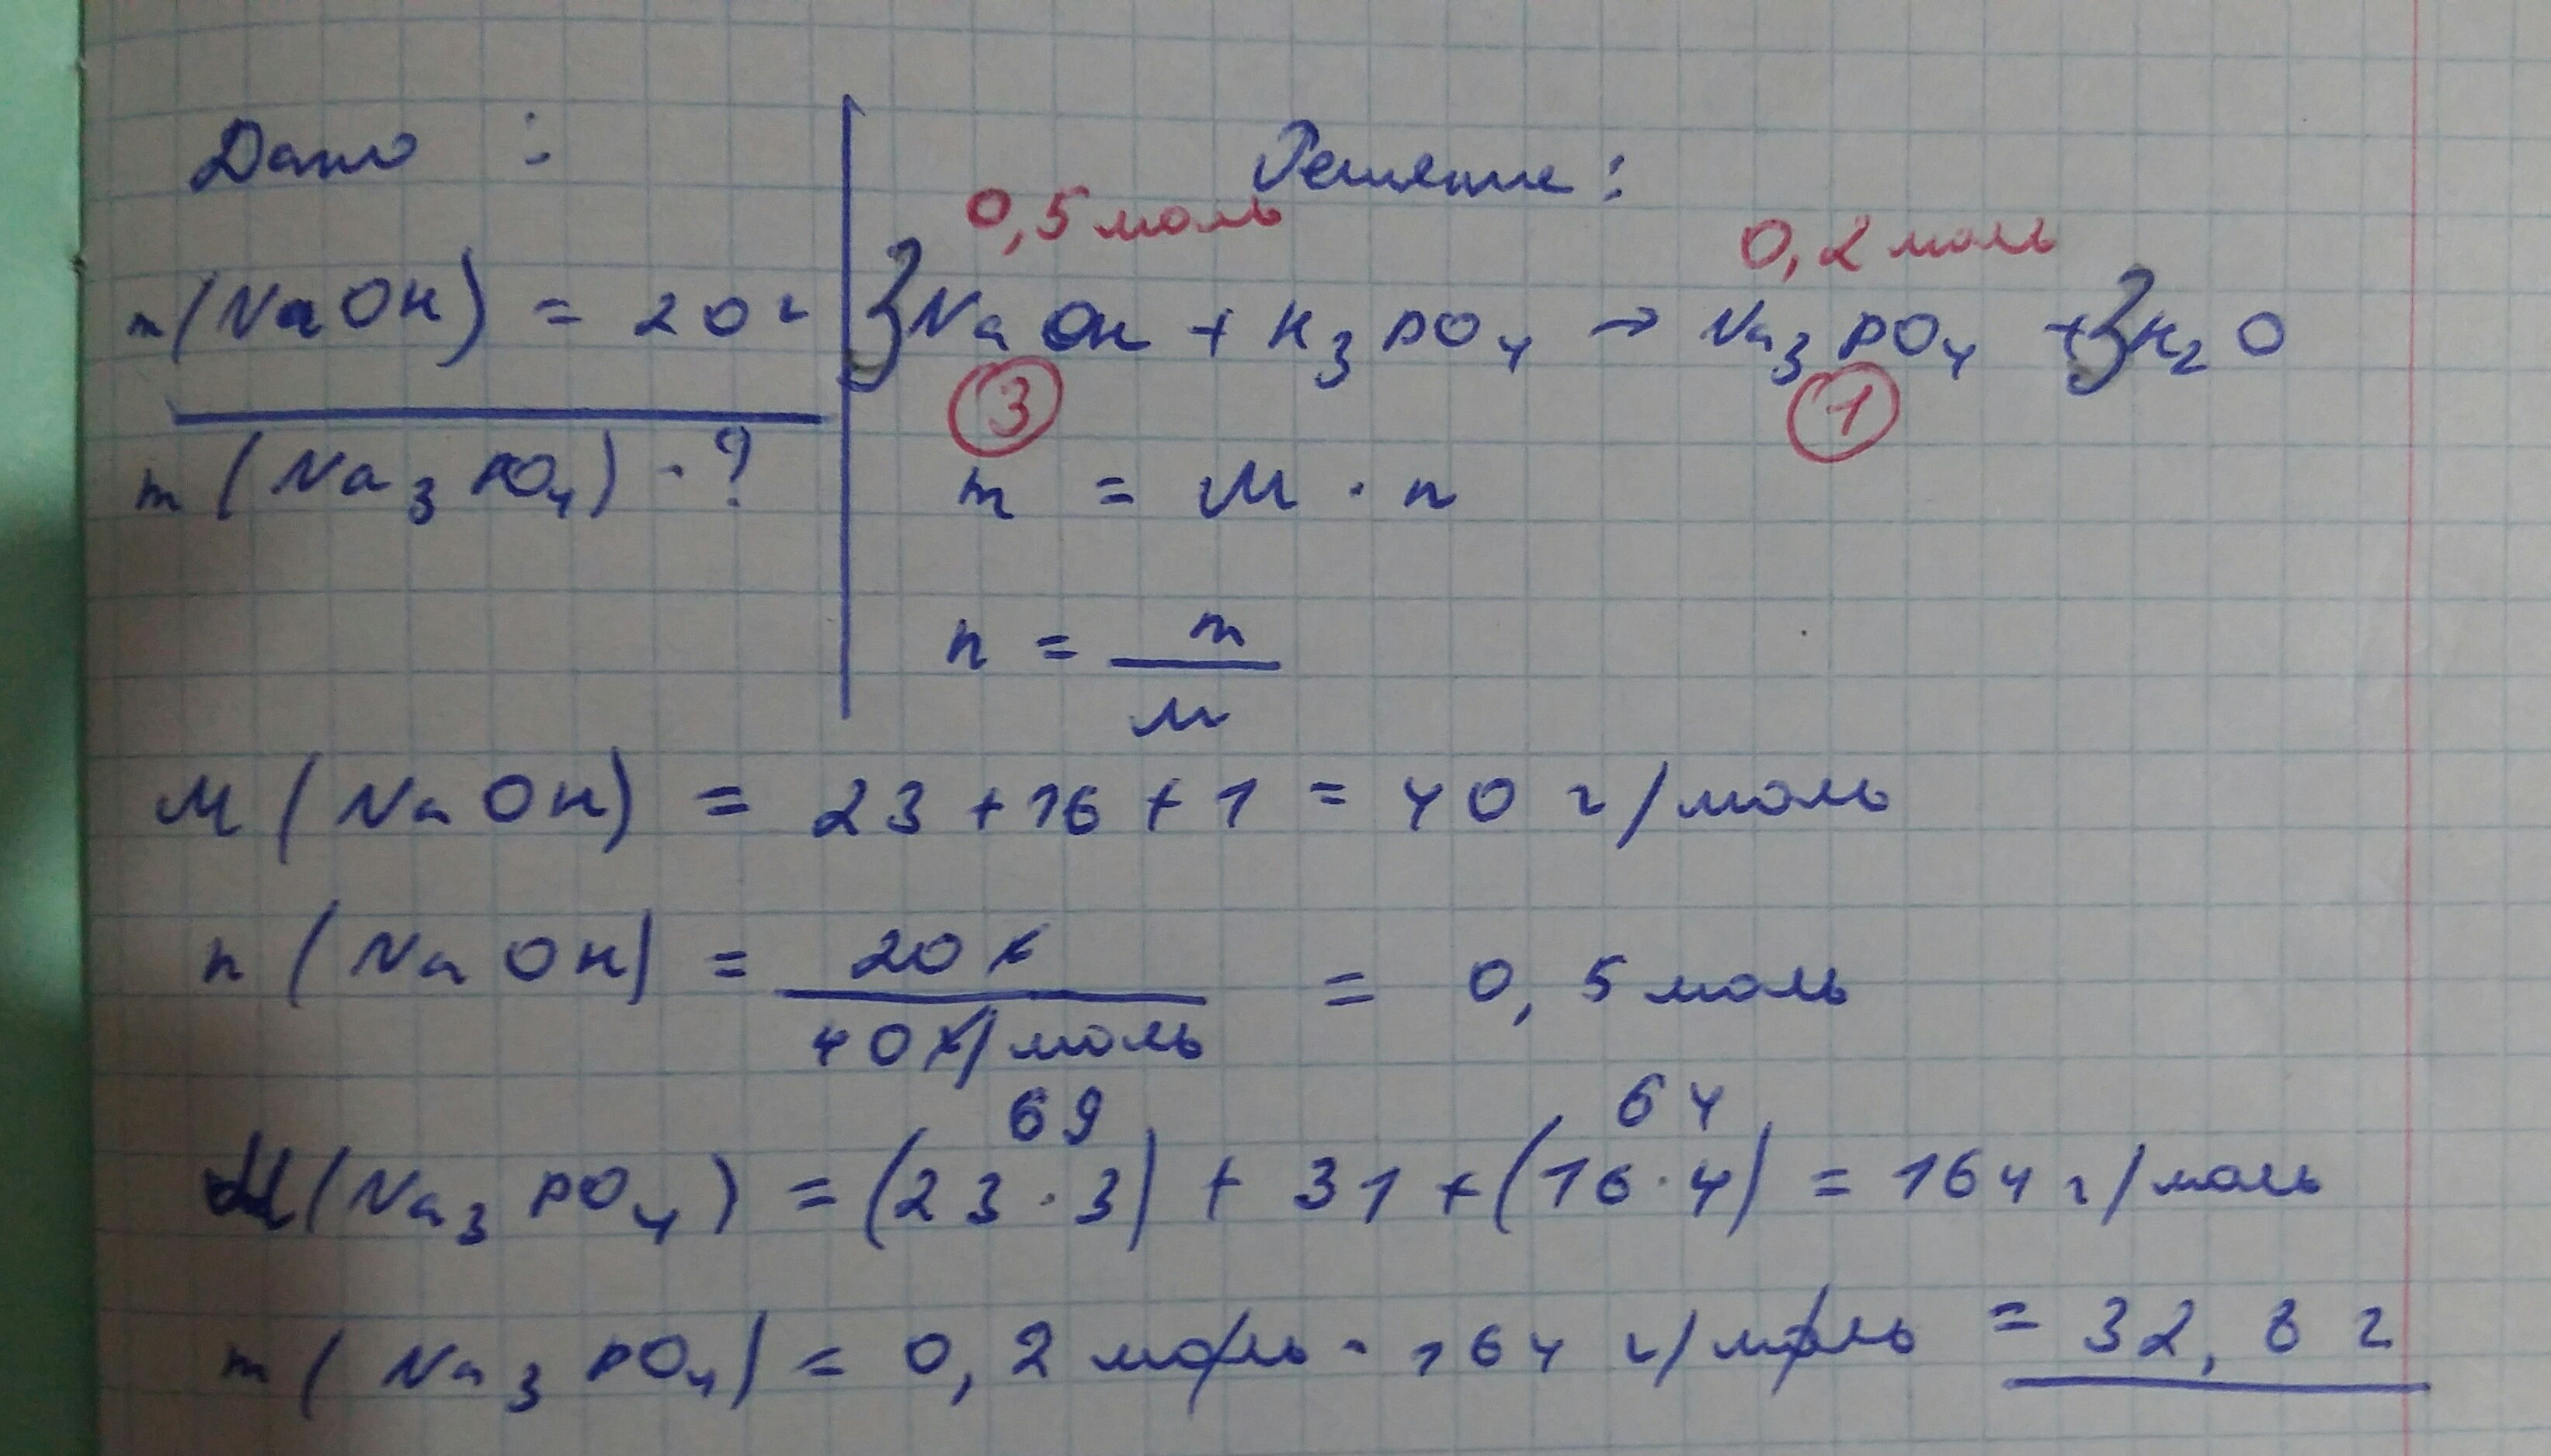 Дано :
m(NaOH) = 20 г
m(Na₃PO₄) - ?
Решение :
0,5 моль 0,2 моль
3NaOH + H₃PO₄ → Na₃PO₄ + 3H₂O
3 1
m = M · n
n = m / M
M(NaOH) = 23 + 16 + 1 = 40 г/моль
n(NaOH) = 20 г / 40 г/моль = 0,5 моль
69 64
M(Na₃PO₄) = (23 · 3) + 31 + (16 · 4) = 164 г/моль
m(Na₃PO₄) = 0,2 моль · 164 г/моль = 32,8 г